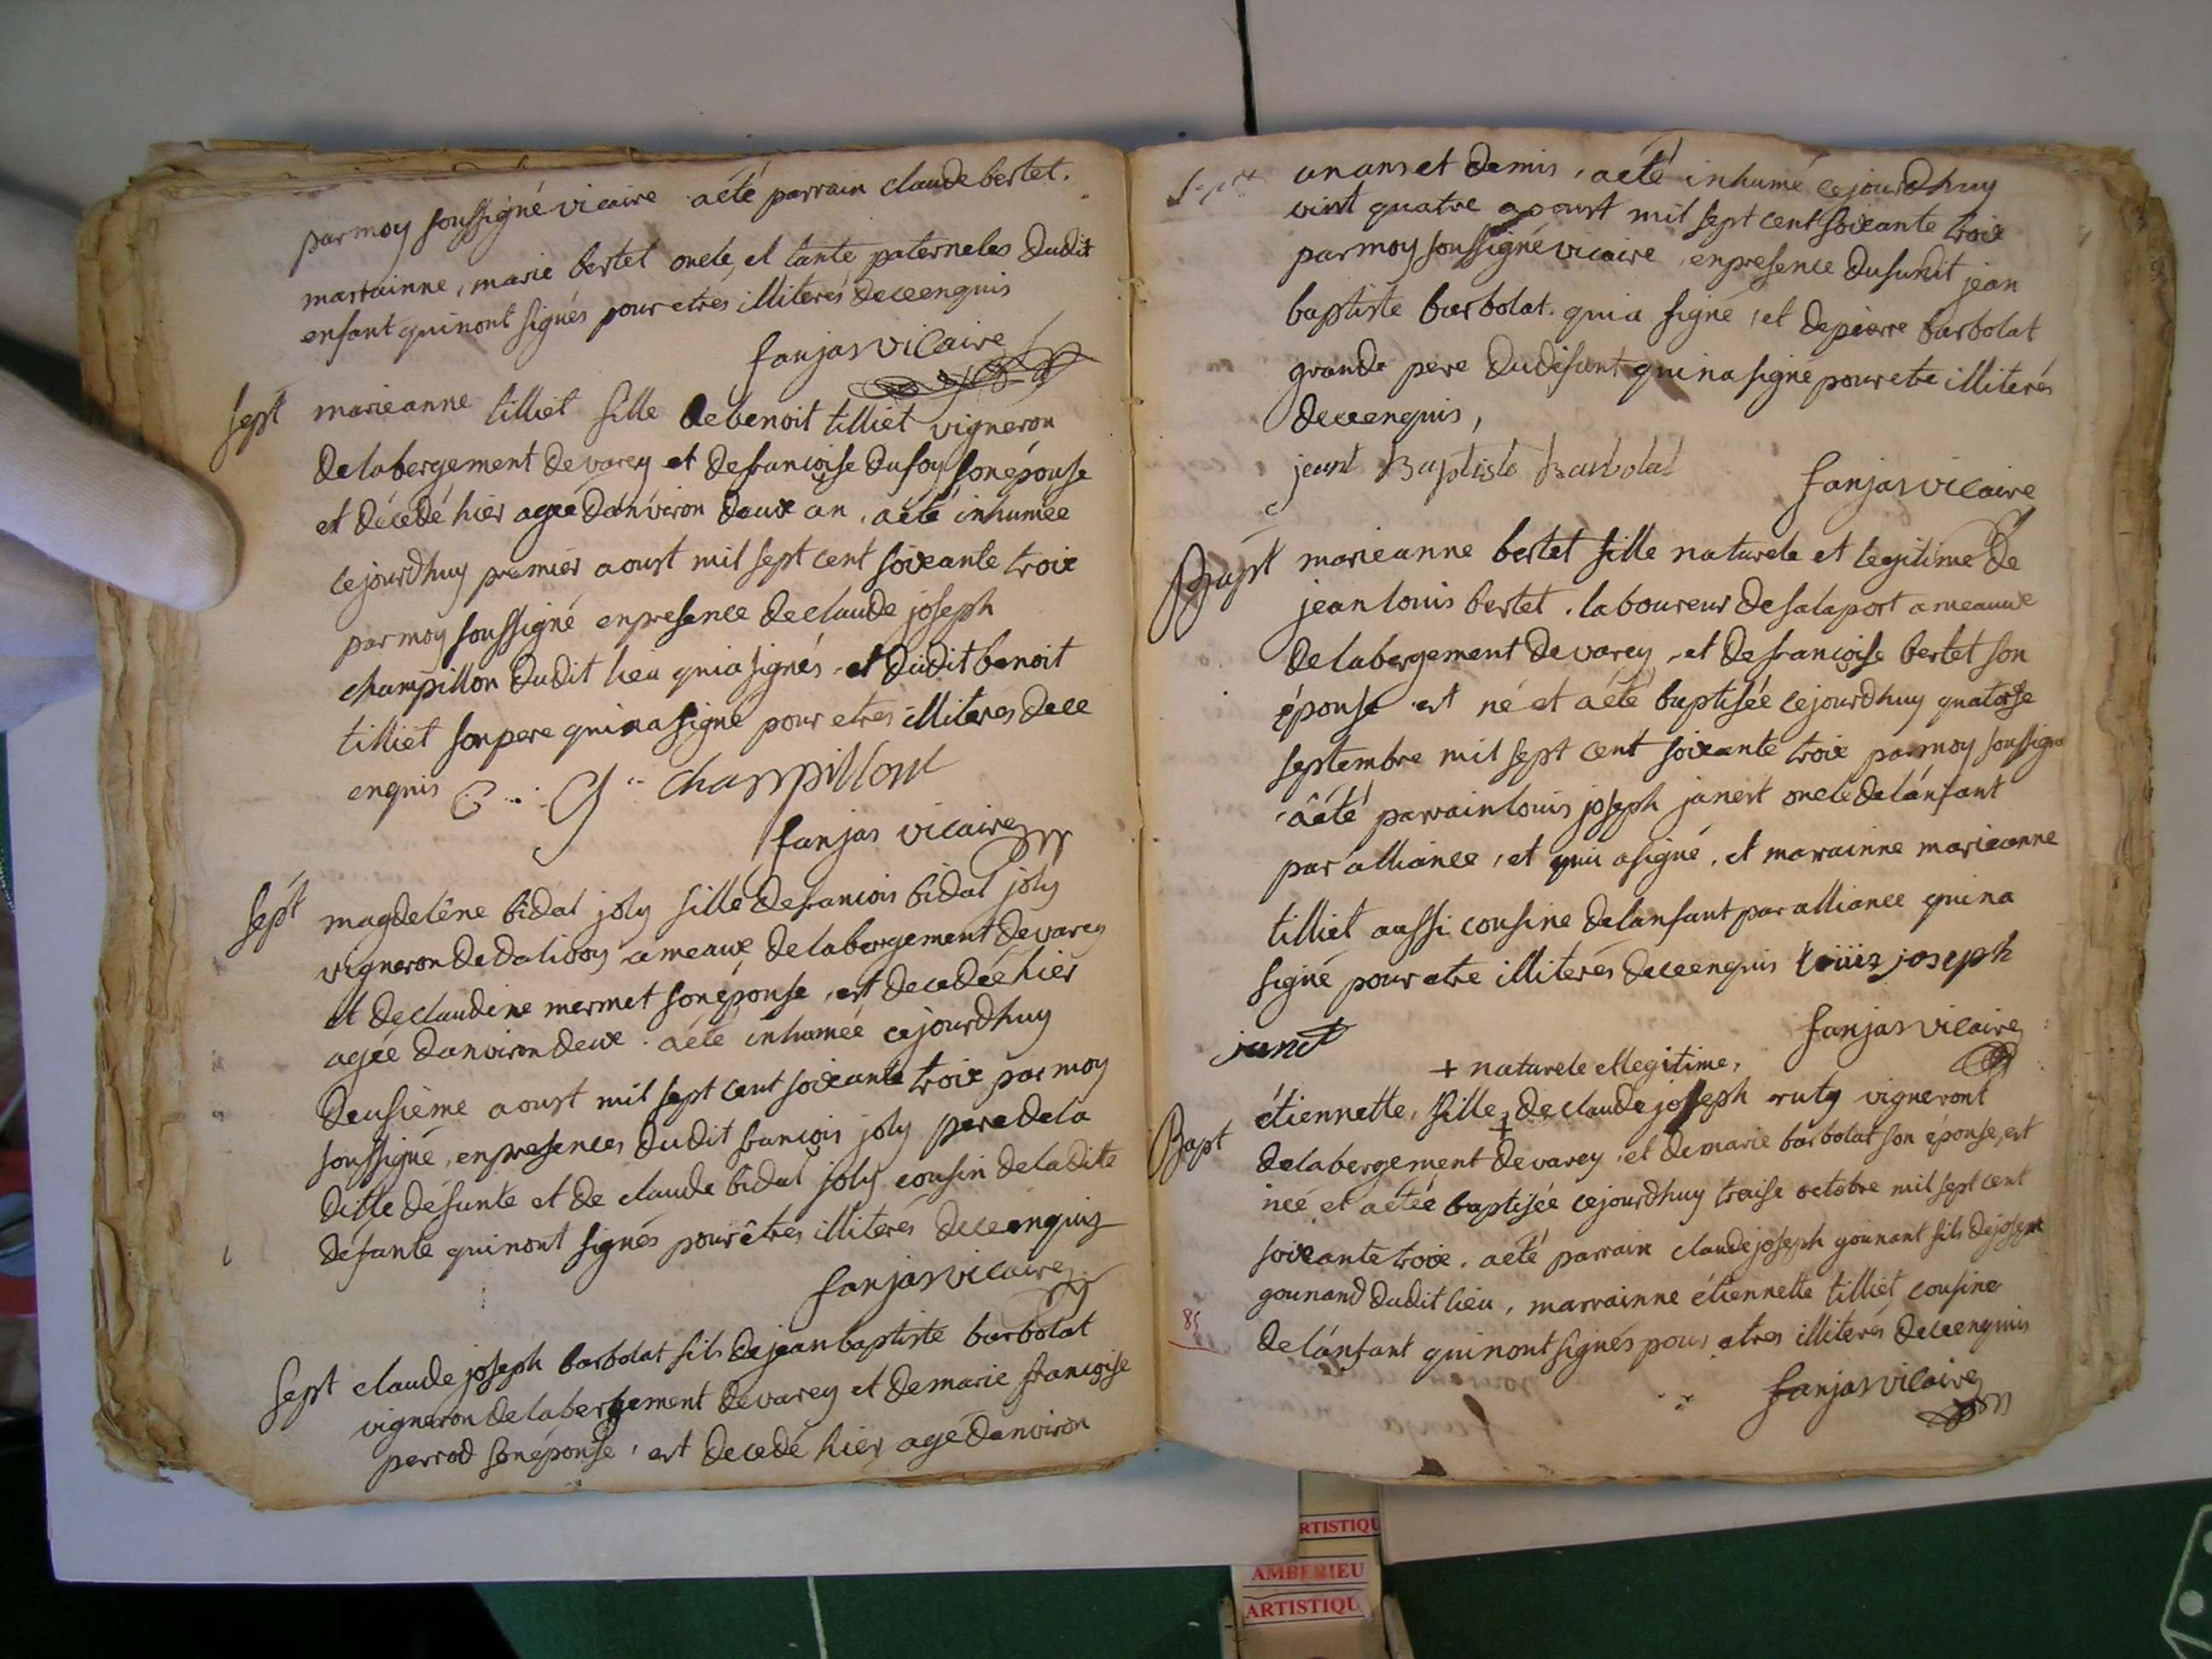 par moy soussigné vicaire a été parrain claude bertet.
marrainne, marie bertet oncle, et tante paterneles dudit
enfant qui nont signés pour etrés illiterés de ce enquis
fanjas vicaire
sept
marieanne tilliet fille de benoit tilliet vigneron
de labergement de varey et de francoise dufoy son épouse
et décédé hier agée danviron deux an, a été inhumée
cejourdhuy premier aoust mil sept cent soixante troix
par moy soussigné en presence de claude joseph
champillon dudit lieu qui a signés et dudit benoit
tilliet son pere qui na signé pour etres illiterés de ce
enquis C.. J.. champillont
fanjas vicaire
sept
magdeléne bidal joly fille de francois bidal joly
vigneron de dalivoy ameaux de labergement de varey
et de claudine mermet son épouse, est decedée hier
agée danviron deux. a été inhumeé cejourdhuy
deusiéme aoust mil sept cent soixante troix par moy
soussigné, en presences dudit francois joly pere de la
ditte défunte et de claude bidal joly cousin de ladite
defante qui nont signés pour êtres illiterés de ce enquis
fanjas vicaire
sept
claude joseph barbolat fils de jean baptiste barbolat
vigneron de labergement de varey et de marie francoise
perrod son épouse, est decedé hier agé danviron
sept
un ans et demis, a été inhumé cejourdhuy
vint quatre aoust mil sept cent soixante troix
par moy soussigné vicaire, en presence du susdit jean
baptiste barbolat. qui a signé, et de pierre barbolat
grande pere du défunt qui na signé pour etre illiterés
de ce enquis,
jeant Baptiste Barbolat
fanjas vicaire
Bapt
marieanne bertet fille naturele et legitime de
jean louis bertet. laboureur de salaport ameauxe
de labergement de varey, et de francoise bertet son
éponse est né et a été baptisée cejourdhuy quatorse
septembre mil sept cent soixante troix par moy soussigné
a été parrain louis joseph janest oncle de lánfant
par alliance, et qui a signé, et marrainne marieanne
tilliet aussi cousine de lanfant par alliance qui na
signé pour etre illiterés de ce enquis louis joseph
janet
fanjas vicaire
+ naturele et legitime,
Bapt
étiennette, fille + de claude joseph ruty vigneront
de labergement de varey, et de marie barbolat son épouse, est
neé et a étée baptisée cejourdhuy traise octobre mil sept cent
soixante troix. a été parrain claude joseph gounant fils de joseph
gounand dudit lieu, marrainne étiennette tilliet cousine
85
de lánfant qui nont signés pour etres illiterés de ce enquis
fanjas vicaire
ARTISTIQU
AMBERIEU
ARTISTIQU